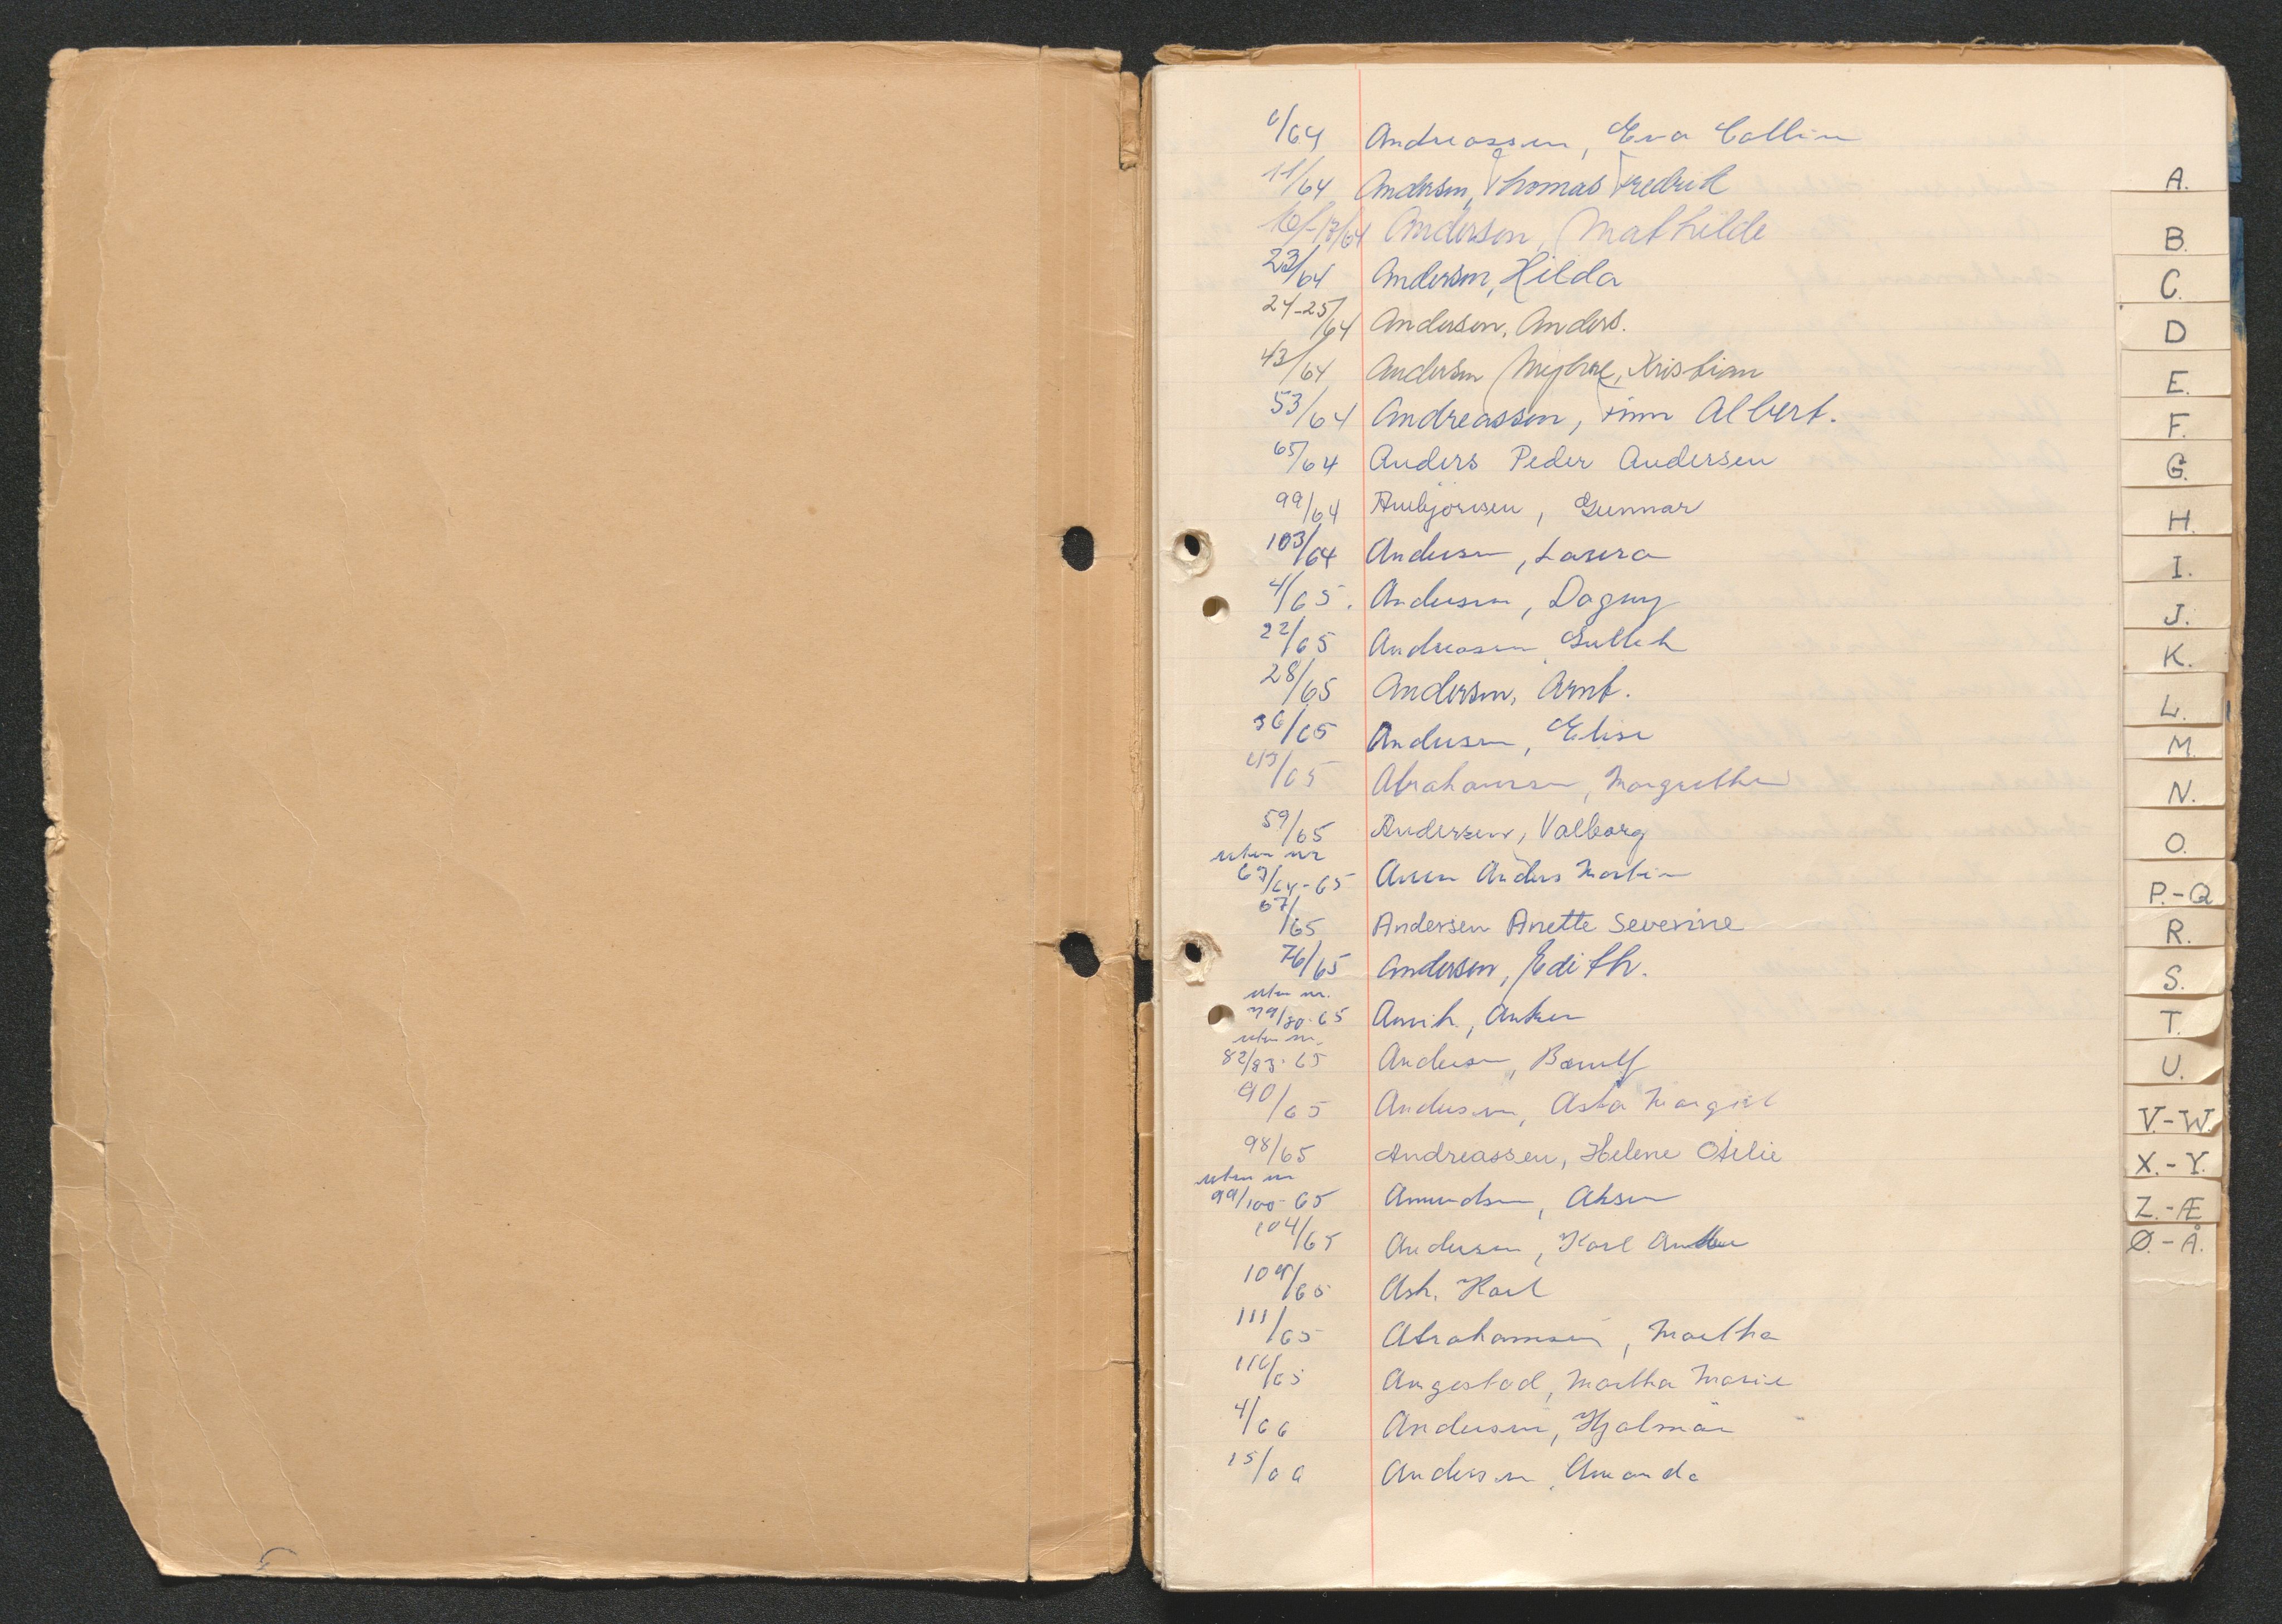 6/64 Andreassen, Eva Collin
11/64 Andersen, Thomas Fredrik
16/-17/64 Andersen, Mathilde
23/64 Andersen, Hilda
24-25/64 Andersen, Anders.
43/64 Andersen Myhre, Kristian
53/64 Andreassen, Finn Albert.
65/64 Anders Peder Andersen
99/64 Ambjørnsen, Gunnar
103/64 Andersen, Laura
4/65. Andersen, Dagny
22/65 Andreassen, Gullik
28/65 Andersen, Arnt.
36/65 Andersen, Elise
45/65 Abrahamsen, Margrethe
59/65 Andersen, Valborg
uten nr
63/64-65 Anders Martin
67/65 Andersen Anette Severine
76/65 Andersen, Edith.
uten nr.
79/80-65
uten nr.
82/83-65 Andersen,
90/65 Andersen, Asta Margit
98/65 Andreassen, Helene Otilie
uten nr
99/100-65 Amundsen,
104/65 Andersen, Karl
109/65 Ask, Karl
111/65 Abrahamsen, Martha
116/65 Angestad, Martha Marie
4/66 Andersen, Hjalmar
15/66 Andersen, Amanda
A.
B.
C.
D
E.
F.
G.
H.
I.
J.
K.
L.
M.
N.
O.
P.-Q
R.
S.
T.
U.
V.-W.
X.-Y.
Z.-Æ
Ø.-Å.